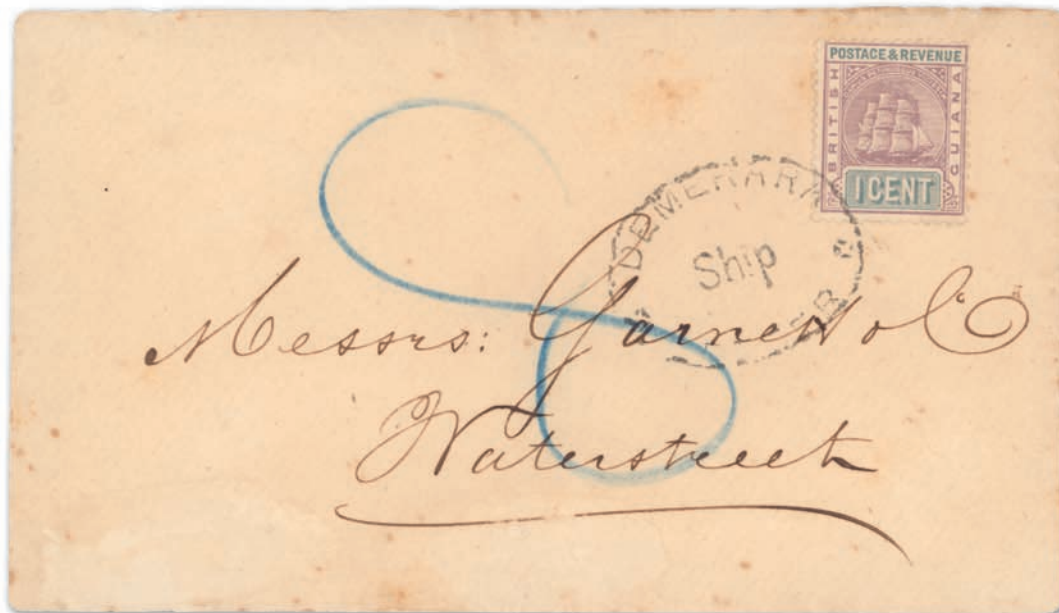 POSTAGE & REVENUE
BRITISH
GUIANA
1 CENT
DEMERARA
Ship
Messrs: Garnett & Co
Waterstreet